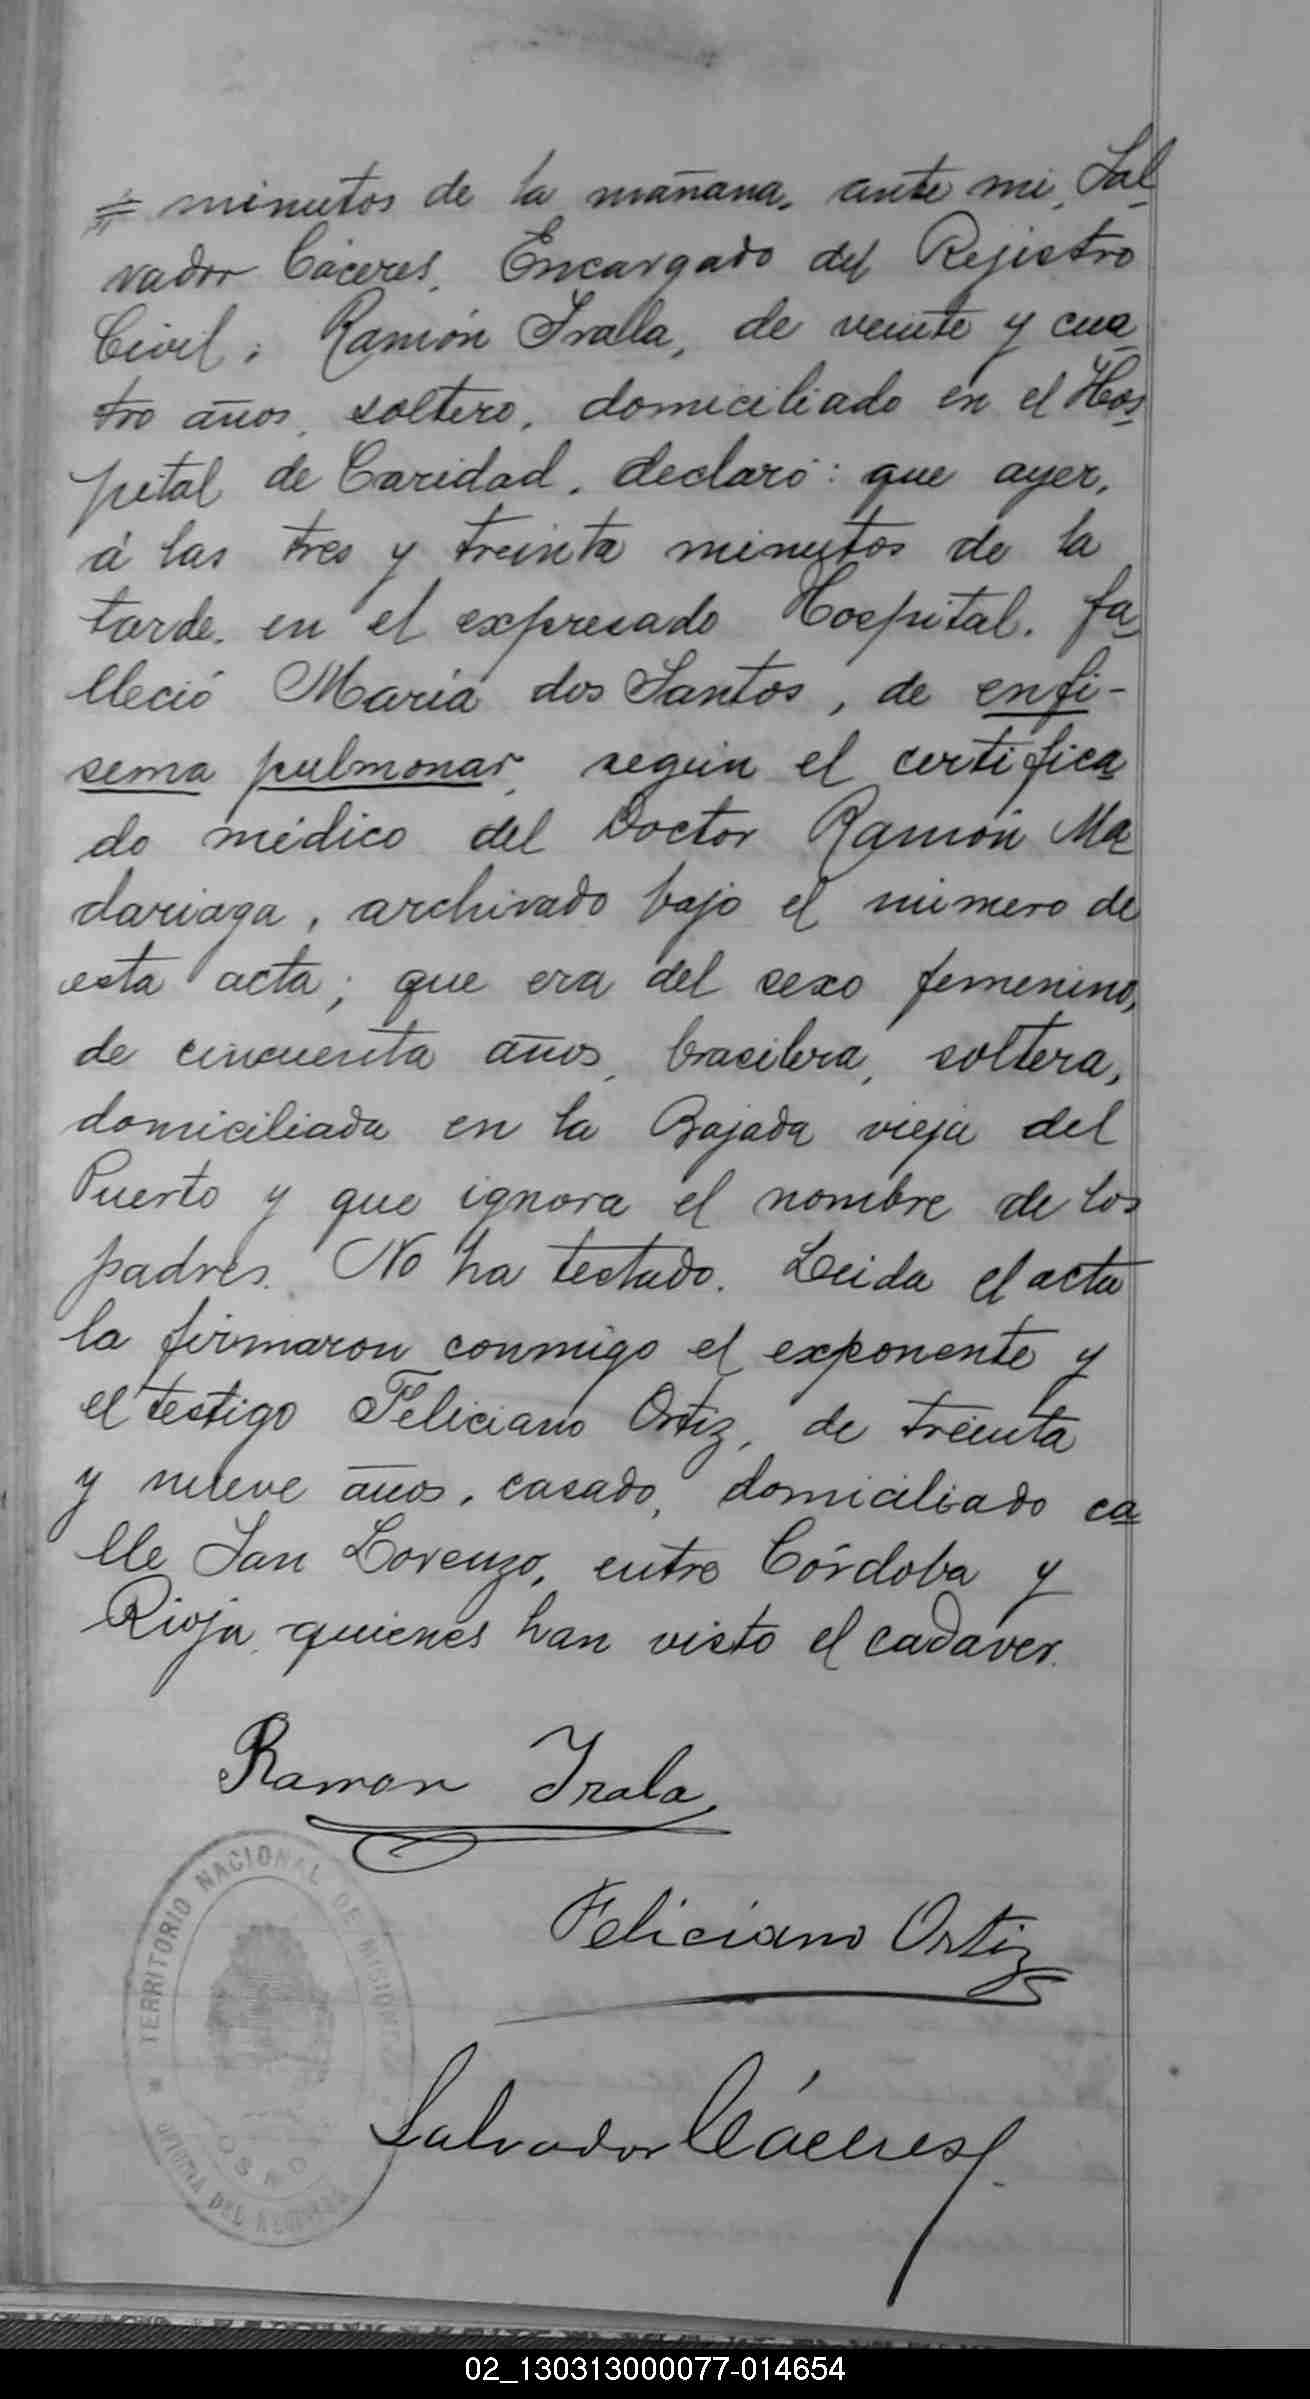 = minutos de la mañana, ante mi, Sal-
vador Cáceres, Encargado del Rejistro
Civil; Ramón Iralla, de veinte y cua
tro años, soltero, domiciliado en el Hos
pital de Caridad, declaró: que ayer,
á las tres y treinta minutos de la
tarde, en el expresado Hospital, fa
lleció María dos Santos, de enfi-
sema pulmonar, según el certifica
do médico del Doctor Ramón Ma
dariaga, archivado bajo el número de
esta acta; que era del sexo femenino,
de cincuenta años, brasilera, soltera,
domiciliada en la Bajada vieja del
Puerto y que ignora el nombre de los
padres. No ha testado. Leida el acta
la firmaron conmigo el exponente y
el testigo Feliciano Ortiz, de treinta
y nueve años, casado, domiciliado ca
lle San Lorenzo, entre Córdoba y
Rioja, quienes han visto el cadaver.
Ramon Irala
Feliciano Ortiz
TERRITORIO NACIONAL DE MISIONES
Salvador Cáceres
02_130313000077-014654